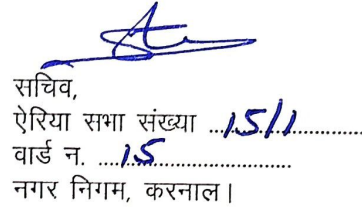 सचिव,
ऐरिया सभा संख्या ...15/1..................
वार्ड न. ...15.......................
नगर निगम, करनाल।